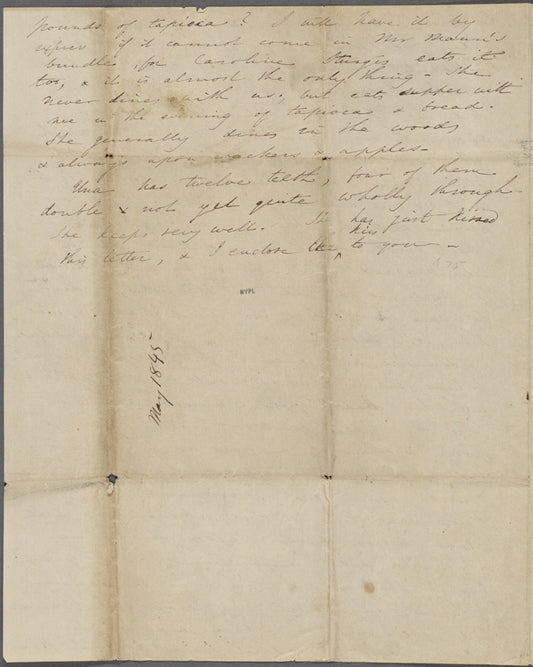 pounds of tapioca? I will have it by
express if it cannot come in Mr Mann's
bundle, for Caroline Sturgis eats it
too, & it is almost the only thing. She
never dines with us, but eats supper with
me in the evening of tapioca & bread.
She generally dines in the woods
& always upon crackers & apples.
Una has twelve teeth, four of them
double & not yet quite wholly through.
She keeps very well. She has just kissed
kiss
this letter, & I enclose the ‸ to you —
NYPL
May 1845